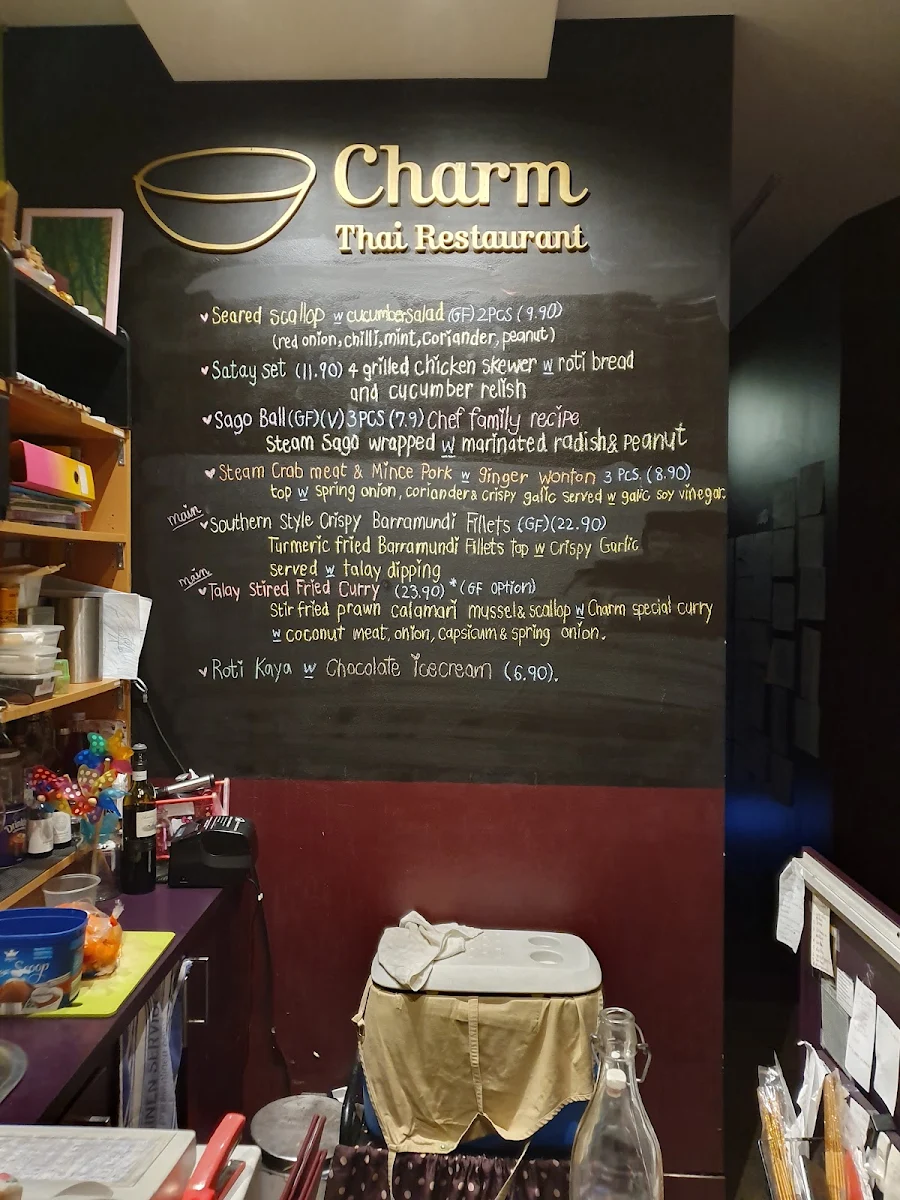 Charm
Thai Restaurant
Seared scallop w cucumbersalad (GF) 2PCS (9.90)
(red onion, chilli, mint, coriander, peanut)
Satay set (11.90) 4 grilled chicken skewer w roti bread
and cucumber relish
Sago Ball (GF)(V) 3PCS (7.9) Chef family recipe
Steam Sago wrapped w marinated radish & peanut
Steam Crab meat & Mince Pork w ginger wonton 3 PCS. (8.90)
top w spring onion, coriander & crispy galic served w galic soy vinegar.
main
Southern Style Crispy Barramundi Fillets (GF)(22.90)
Turmeric fried Barramundi Fillets Top w Crispy Garlic
served w talay dipping
main
Talay Stired Fried Curry (23.90) *(GF option)
Stir fried prawn calamari mussel & scallop w Charm special curry
w coconut meat, onion, capsicum & spring onion.
Roti Kaya w Chocolate Icecream (6.90).
Scoop